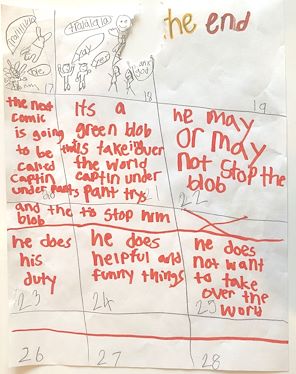 tralalala
the end
hahahaha
yay
yay
17
18
19
the next
comic
is going
to be
called
Captin
under pants
and the
blob
Its a
green blob
thats takeing over
the world
captin under
pant try
to stop him
21
he may
or may
not stop the
blob
22
he does
his
duty
23
he does
helpful and
funny things
24
he does
not want
to take
over the
world
25
26
27
28